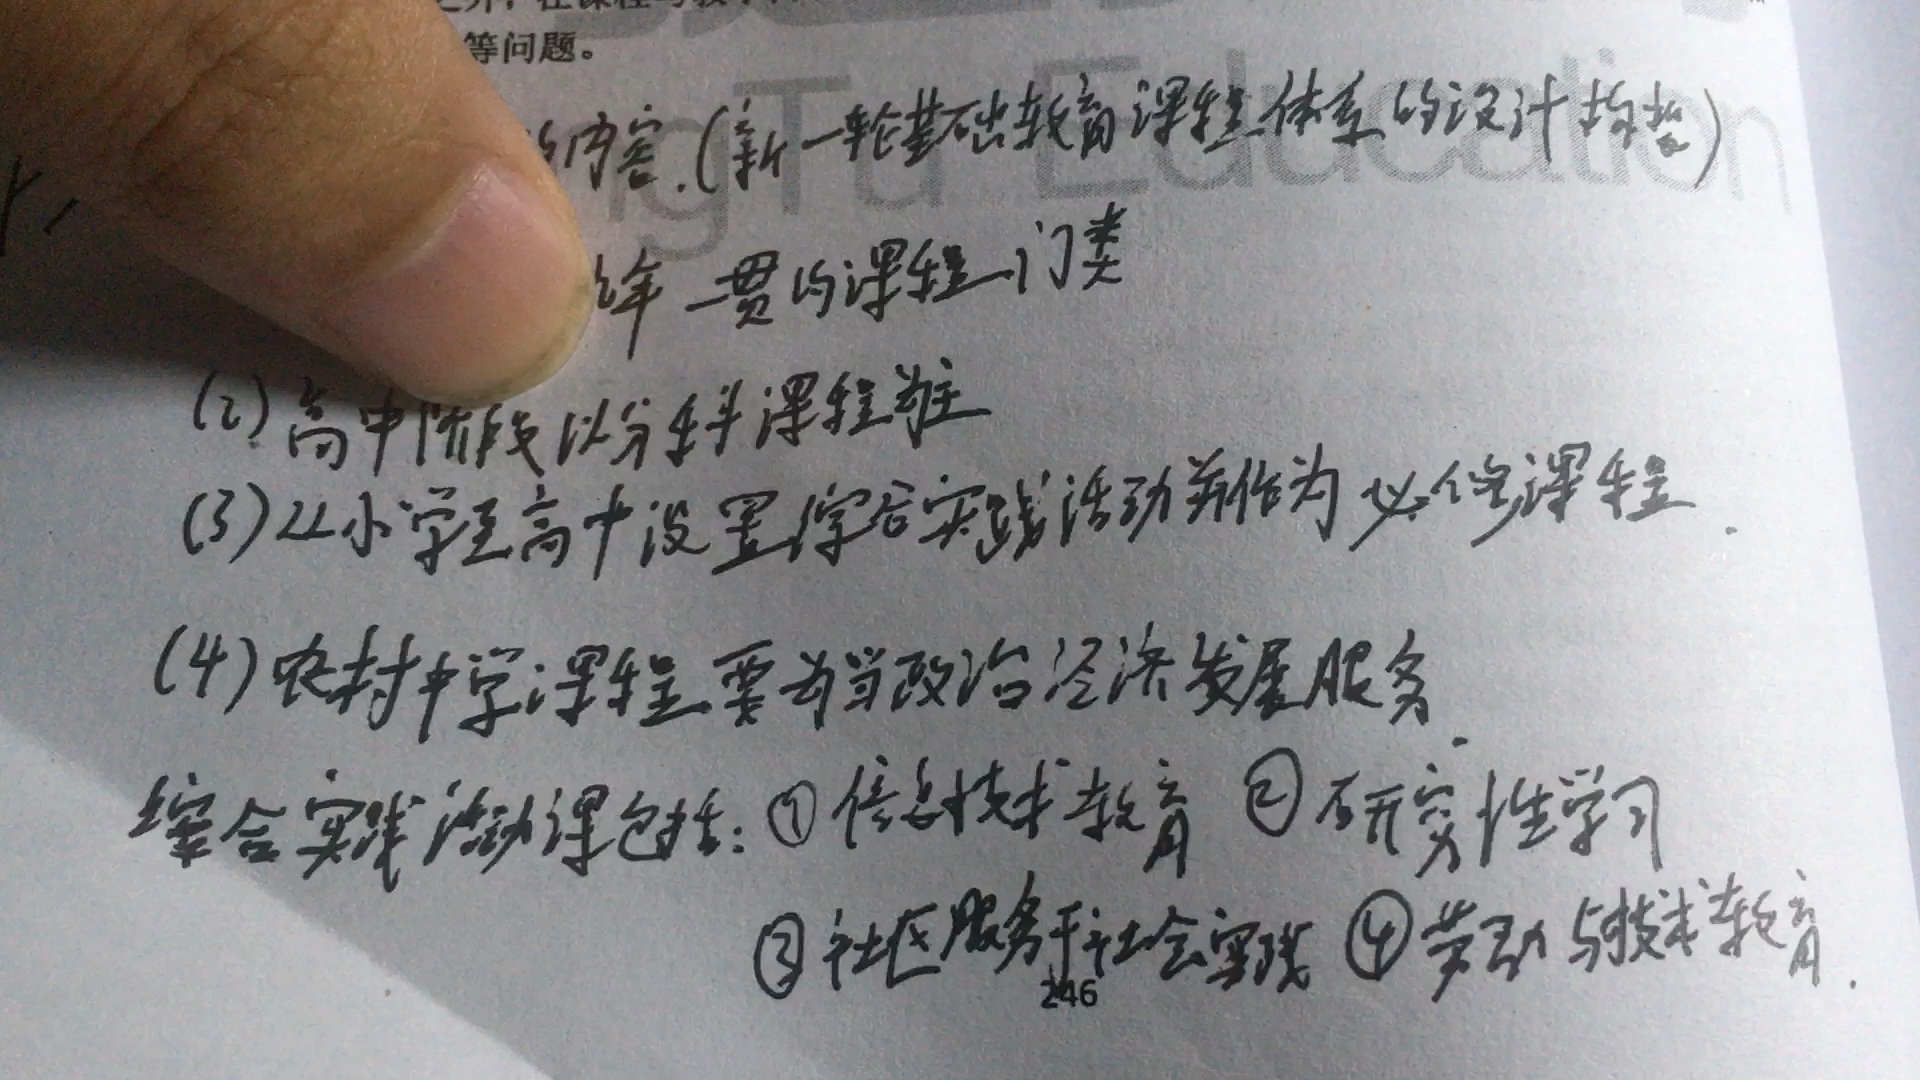 等问题。
内容.(新一轮基础教育课程体系的设计构想)
年一贯的课程门类
(2)高中阶段以分科课程为主
(3)从小学至高中设置综合实践活动并作为必修课程.
(4)农村中学课程要为当政治经济发展服务.
综合实践活动课包括:①信息技术教育 ②研究性学习
③社区服务于社会实践 ④劳动与技术教育.
246
ngTu Education